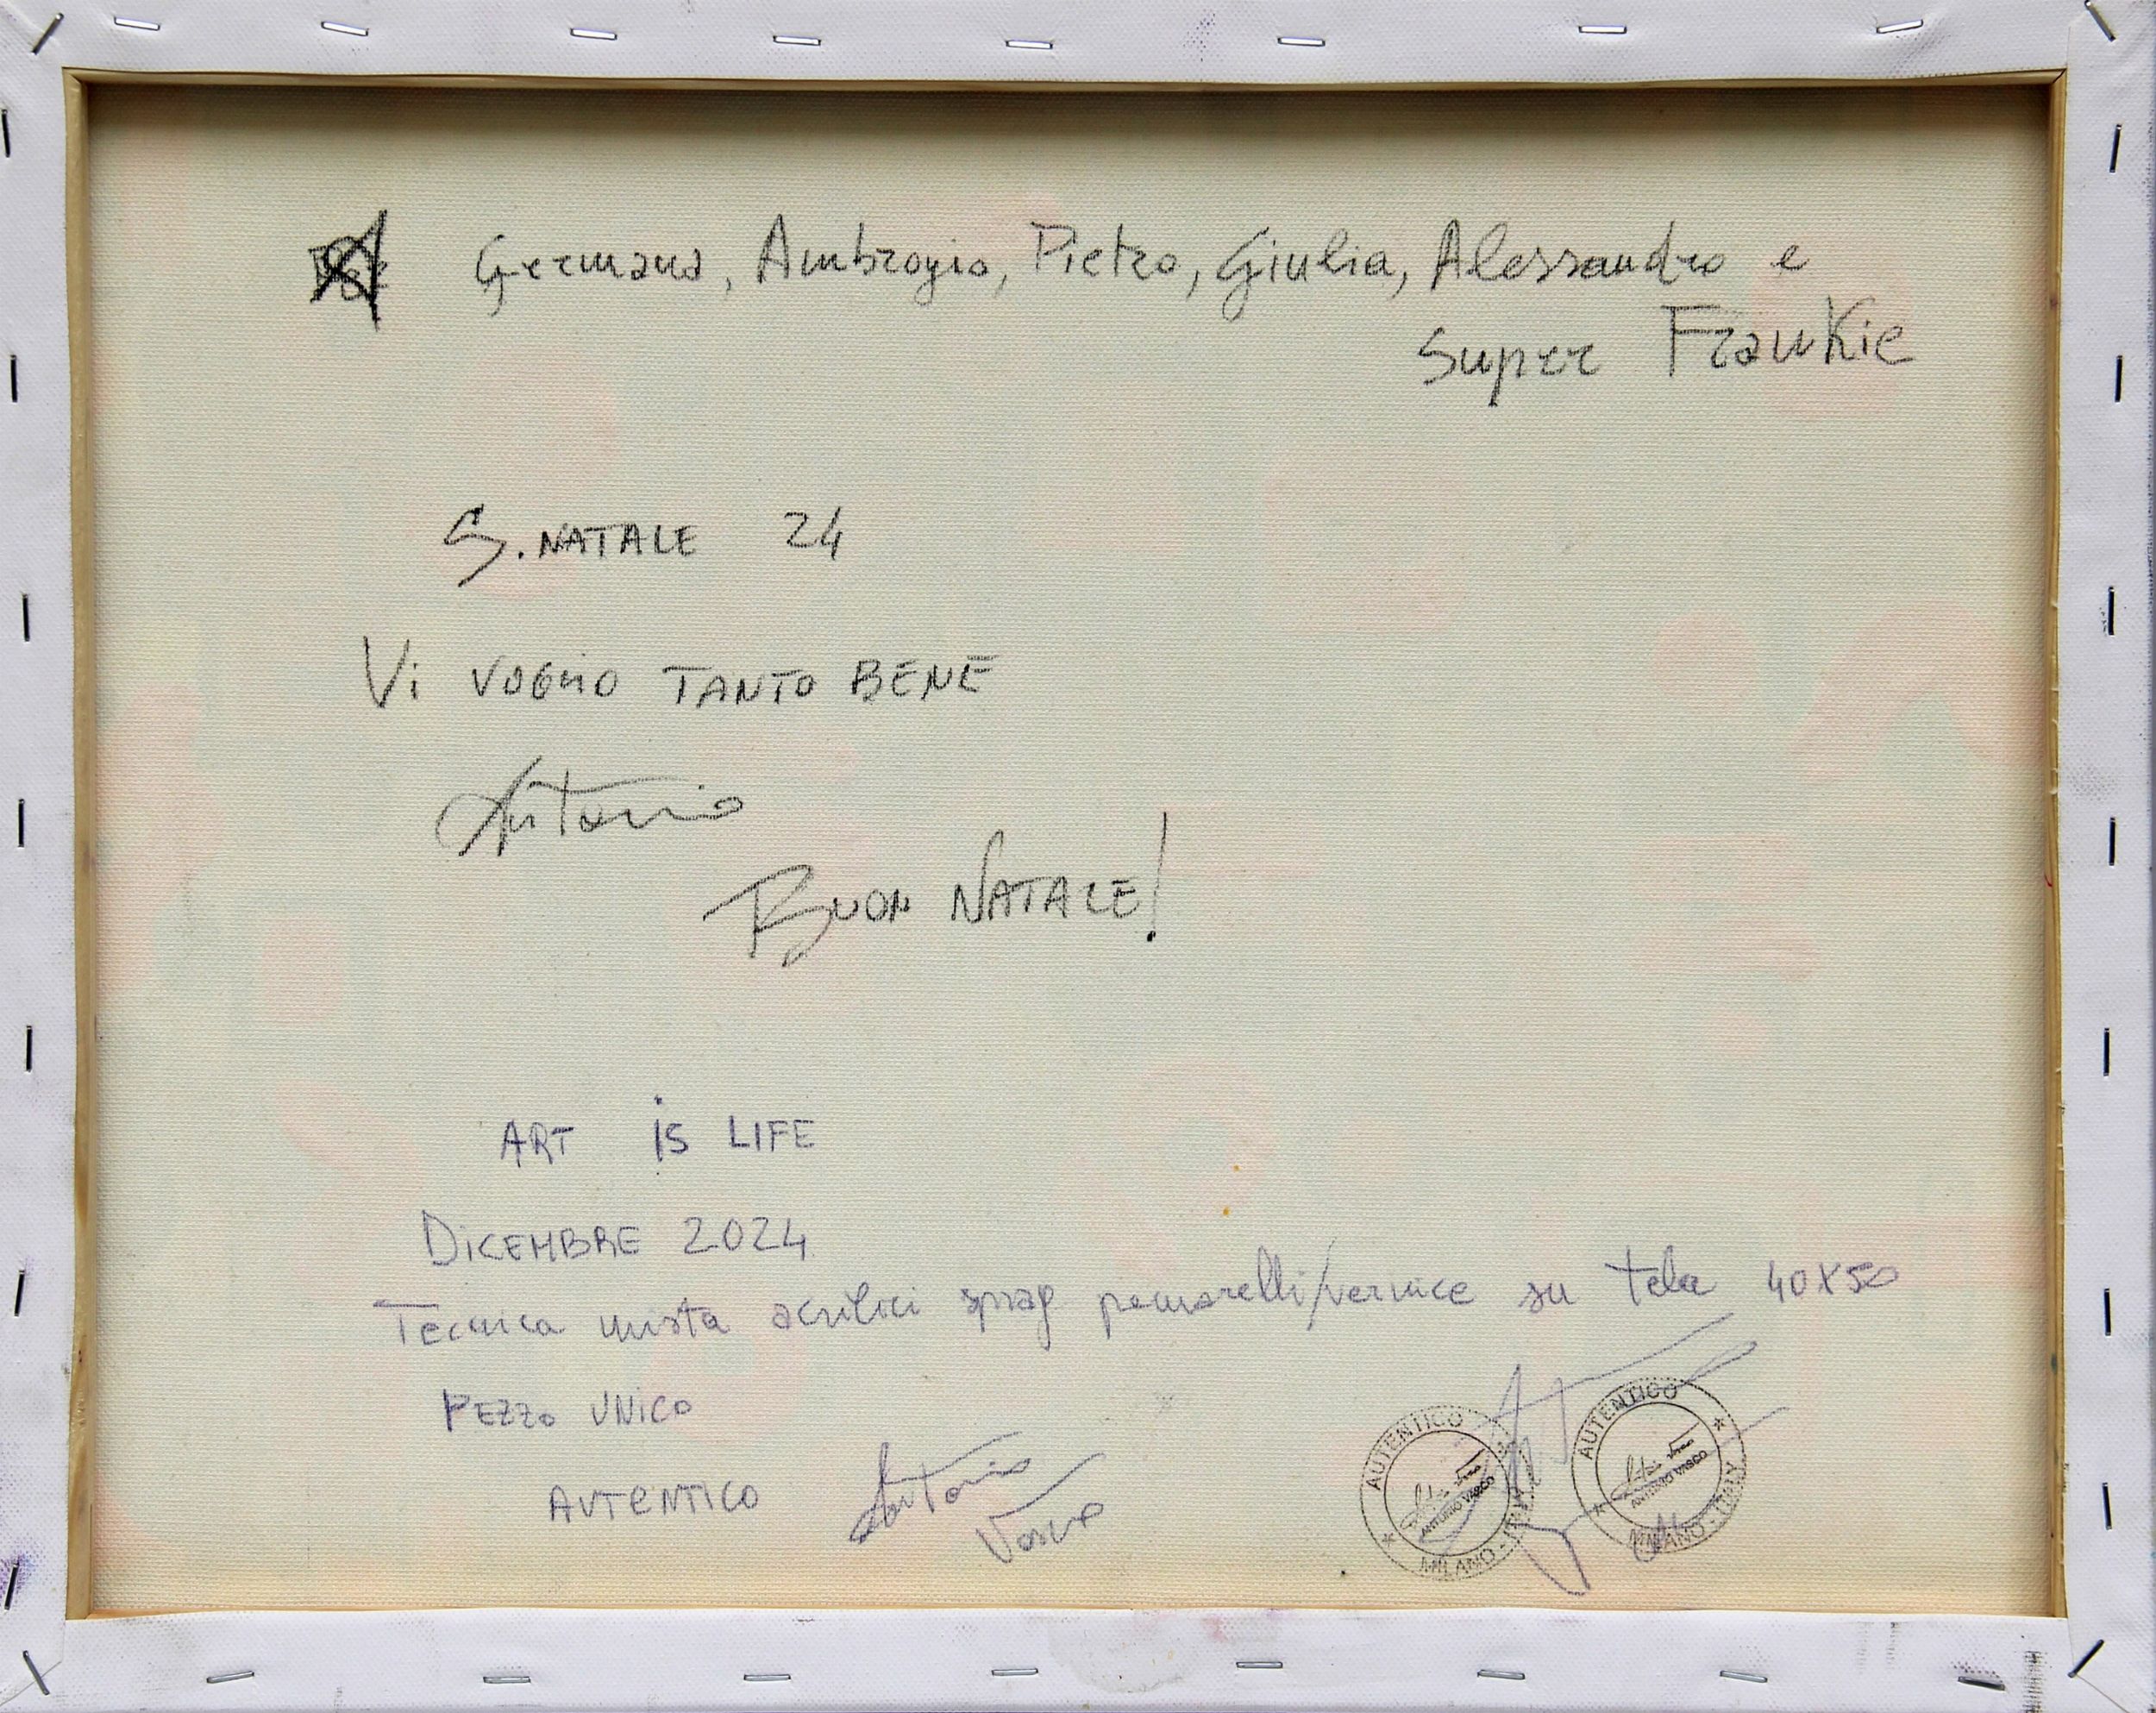 Germana, Ambrogio, Pietro, Giulia, Alessandro e
Super Frankie
S. NATALE 24
Vi VOGLIO TANTO BENE
Antonio
BUON NATALE!
ART is LIFE
DiCEMBRE 2024
Tecnica mista acrilici spray pennarelli/vernice su tela 40X50
PEZZO UNICO
AUTENTICO Antonio
Vasco
AUTENTICO
ANTONIO VASCO
MILANO - ITALY
AUTENTICO
ANTONIO VASCO
MILANO - ITALY